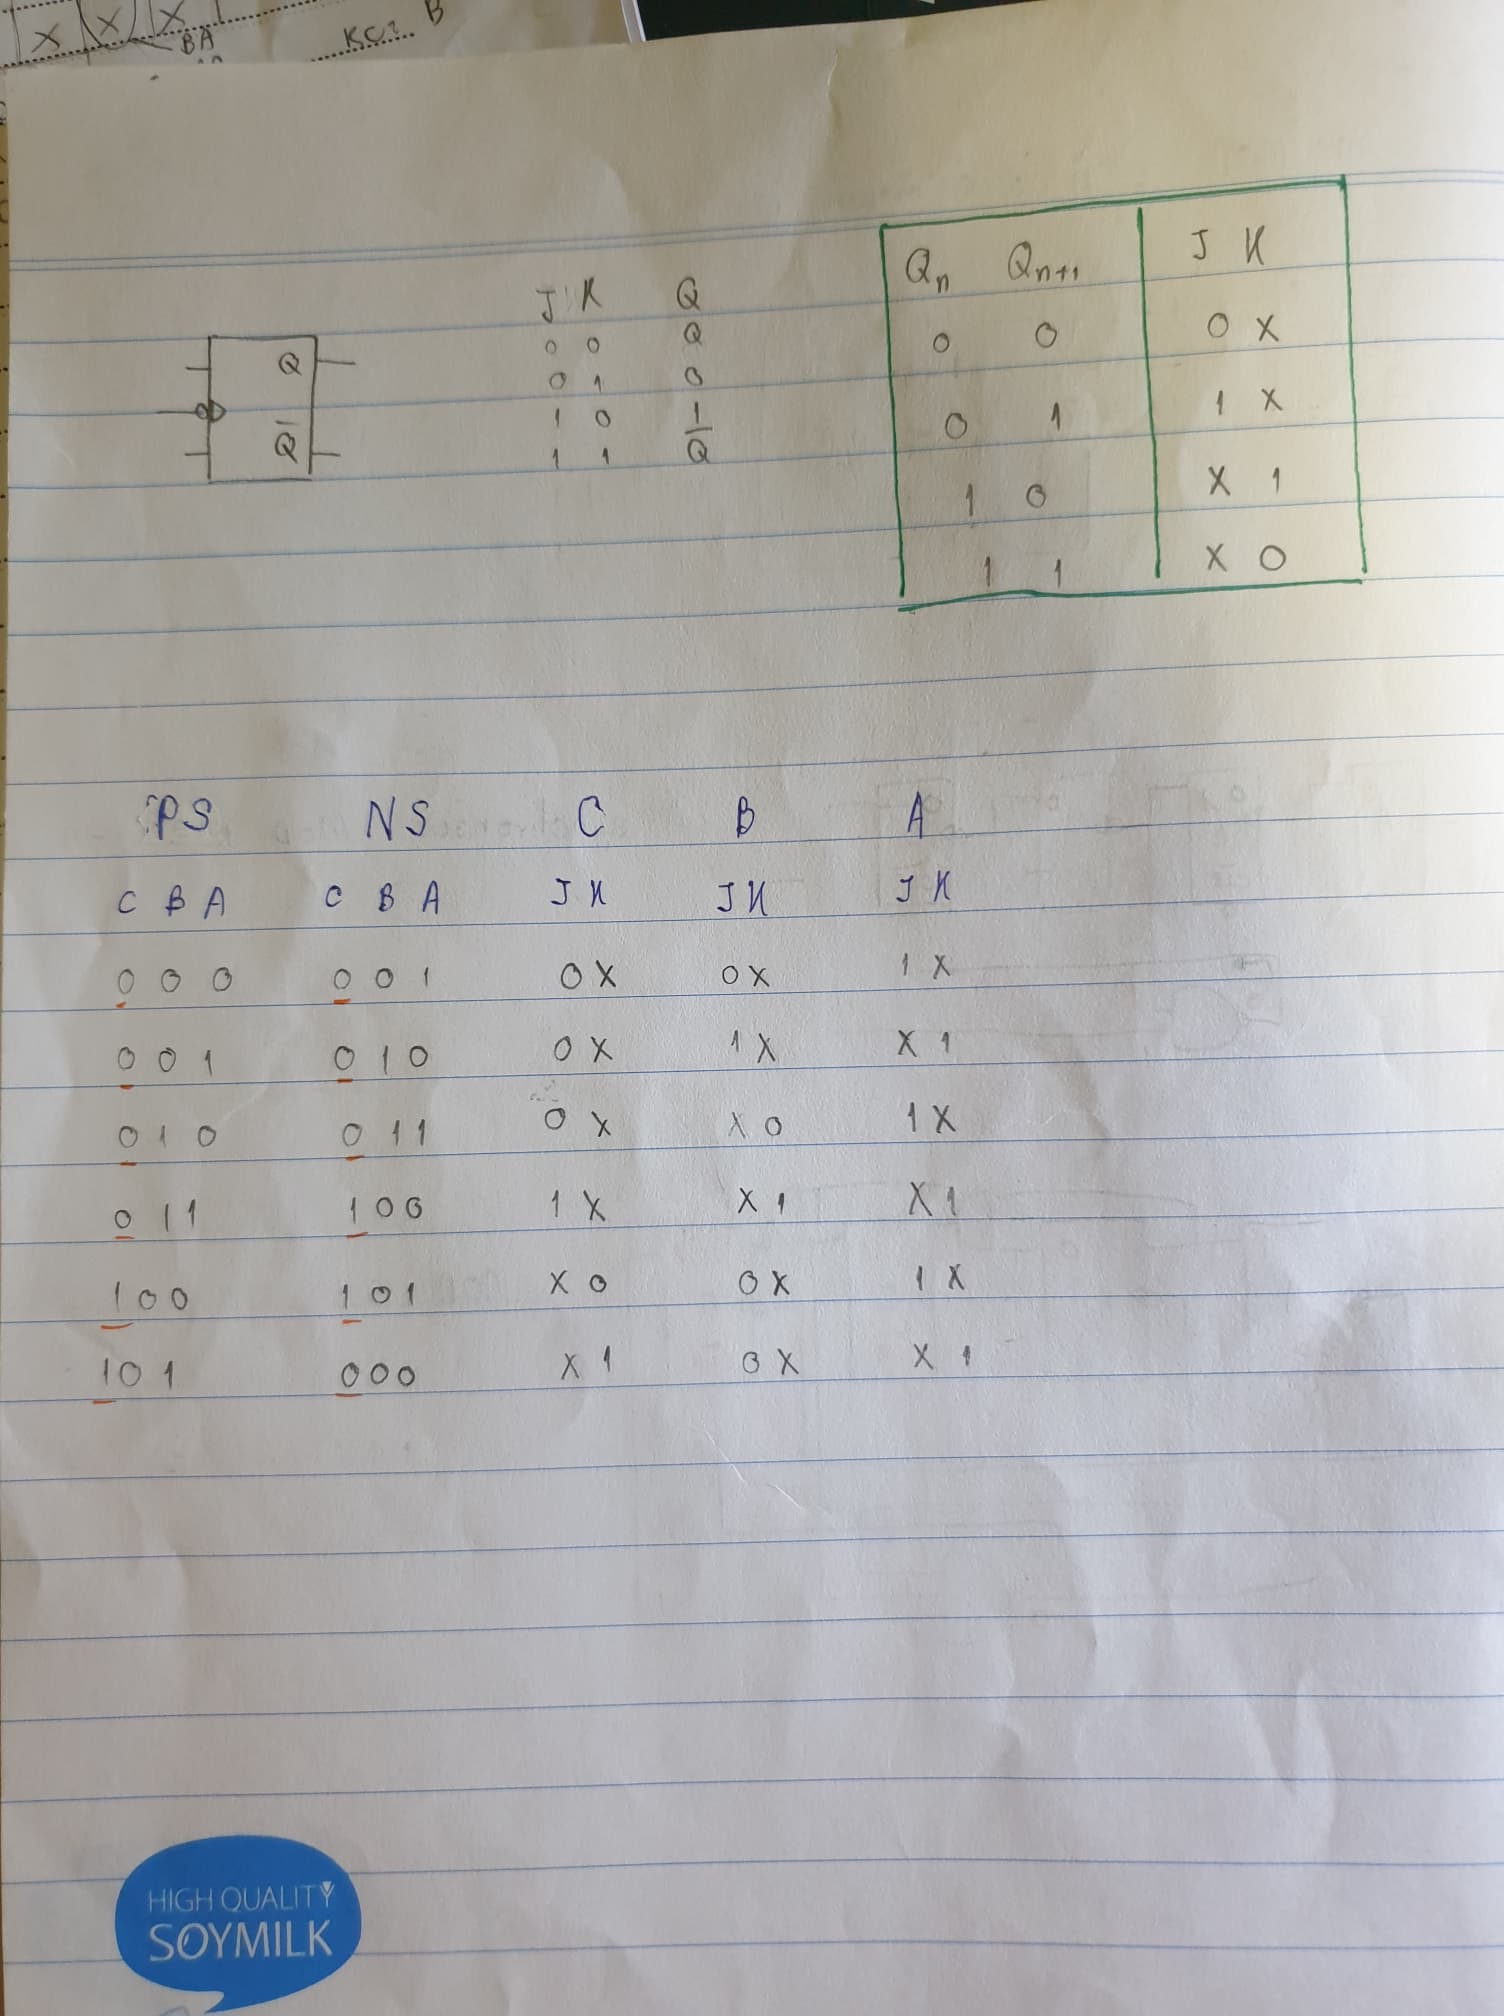 X X X
BA
KC? B
J K Q
0 0 Q
0 1 0
1 0 1
1 1 Q̅
Q
Q̅
Qn Qn+1 J K
0 0 0 X
0 1 1 X
1 0 X 1
1 1 X 0
PS NS C B A
C B A C B A J K J K J K
0 0 0 0 0 1 0 X 0 X 1 X
0 0 1 0 1 0 0 X 1 X X 1
0 1 0 0 1 1 0 X X 0 1 X
0 1 1 1 0 0 1 X X 1 X 1
1 0 0 1 0 1 X 0 0 X 1 X
1 0 1 0 0 0 X 1 0 X X 1
HIGH QUALITY
SOYMILK